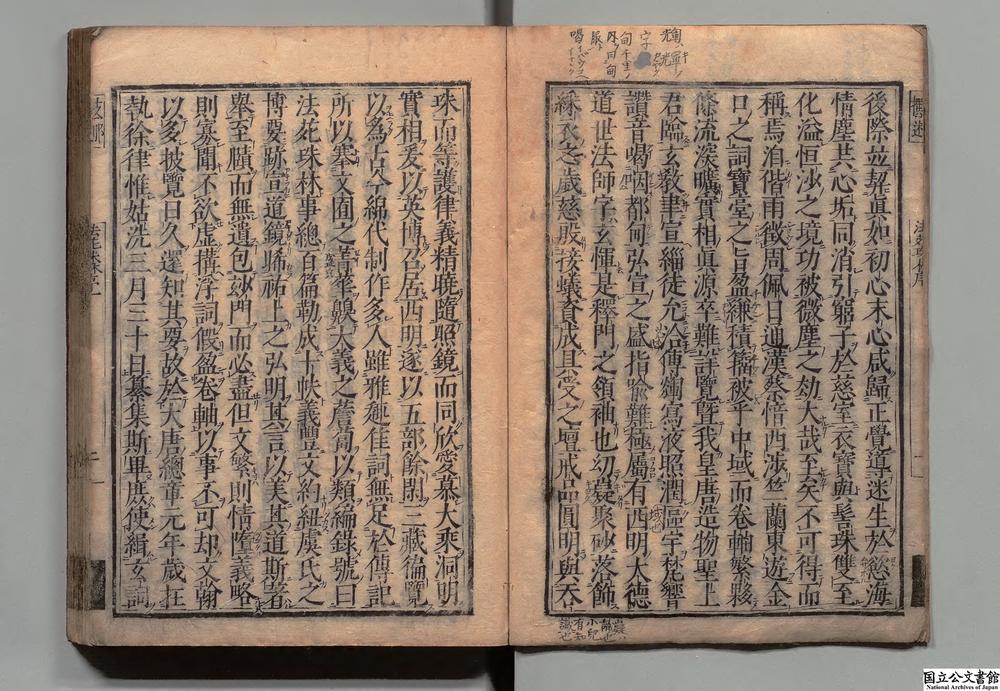 後際竝契眞如初心末心咸歸正覺導迷生於慾海
情塵共心垢同消引窮子於慈室衣寶與髻珠雙至
化溢恒沙之境功被微塵之劫大哉至矣不可得而
稱焉洎偕雨徵周佩日通漢蔡愔西涉竺蘭東遊金
口之詞寶臺之旨盈縑積籀被乎中域而卷軸繁夥
條流深曠實相眞源卒難詳覽曁我皇唐造物聖上
君臨玄敎聿宣緇徒允洽傳輪寫液照潤區宇梵響
讚音喝咽都甸弘宣之盛指喩難極屬有西明大德
道世法師字玄惲是釋門之領袖也幼嶷聚砂落飾
綵衣之歲慈殷接蟻資成具受之壇戒品圓明與吞
珠而等護律義精曉隨照鏡而同欣愛慕大乘洞明
實相爰以英博召居西明遂以五部餘閑三藏徧覽
以爲古今綿代制作多人雖雅趣佳詞無足於傳記
所以搴文囿之菁華嗅大義之薝蔔以類編錄號曰
法苑珠林事總百篇勒成十帙義豐文約紐虞氏之
博要跡宣道鏡晞祐上之弘明其言以美其道斯著
舉至賾而無遺包玅門而必盡但文繁則情墮義略
則寡聞不欲虛搆浮詞假盈卷軸以事不可却文翰
以多披覽日久還知其要故於大唐總章元年歲在
執徐律惟姑洗三月三十日纂集斯畢庶使緝玄詞
国立公文書館
National Archives of Japan